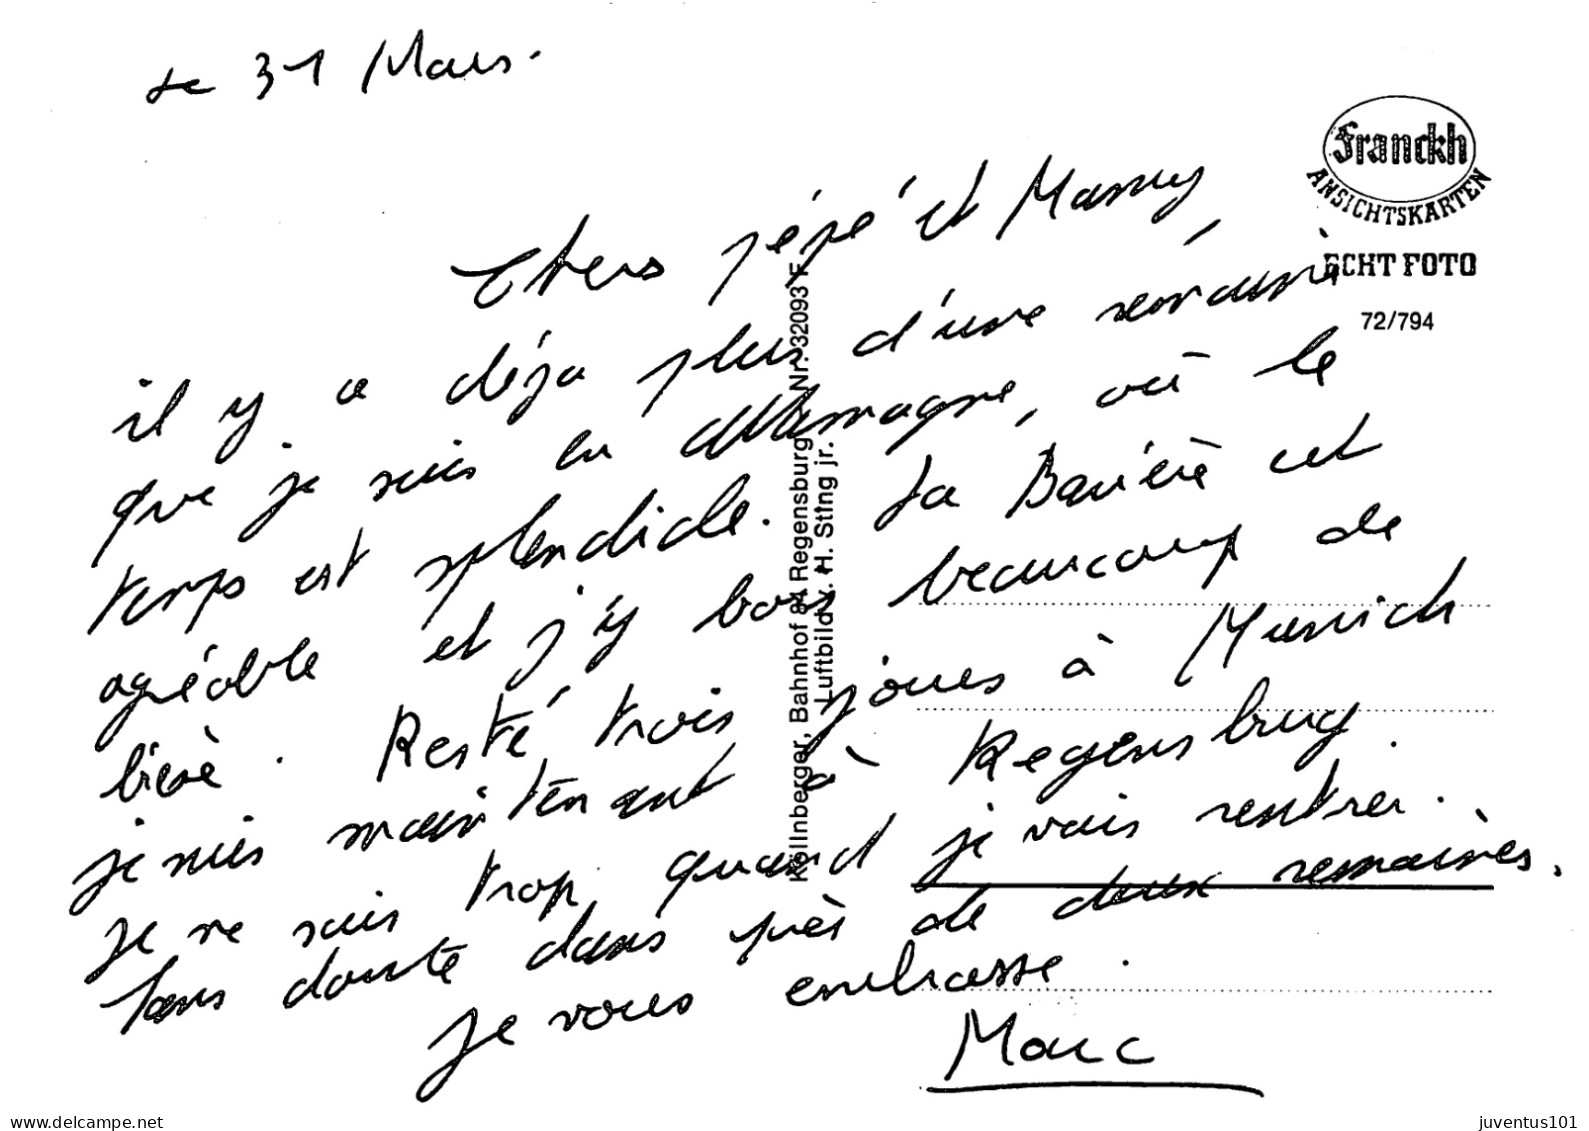 Le 31 Mars.
Chers pépé et Mamy,
il y a déjà plus d'une semaine
que je suis en Allemagne, où le
temps est splendide. La Bavière est
agréable et j'y bois beaucoup de
bière. Resté trois jours à Munich
je suis maintenant à Regensbrug.
Je ne sais trop quand je vais rentrer.
Sans doute dans près de deux semaines.
Je vous embrasse.
Marc
Franckh
ANSICHTSKARTEN
ECHT FOTO
72/794
Kollnberger, Bahnhof 84 Regensburg Nr. 32093 F
Luftbild v. H. Sting jr.
www.delcampe.net
juventus101